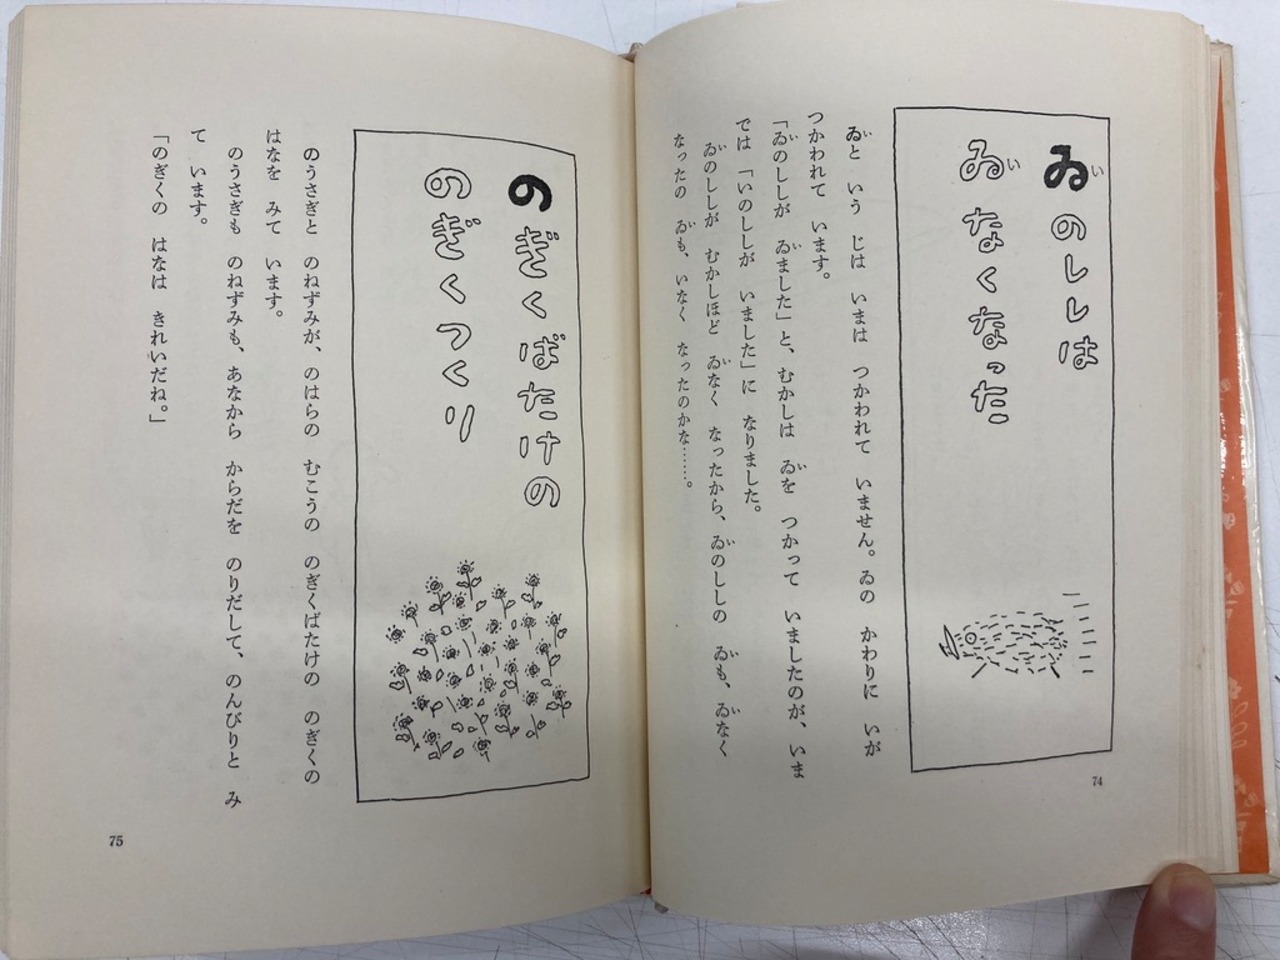 ゐのししは
ゐなくなった
ゐと いう じは いまは つかわれて いません。ゐの かわりに いが
つかわれて います。
「ゐのししが ゐました」と、むかしは ゐを つかって いましたのが、いま
では 「いのししが いました」に なりました。
ゐのししが むかしほど ゐなく なったから、ゐのししの ゐも、ゐなく
なったの ゐも、いなく なったのかな……。
74
のぎくばたけの
のぎくつくり
のうさぎと のねずみが、のはらの むこうの のぎくばたけの のぎくの
はなを みて います。
のうさぎも のねずみも、あなから からだを のりだして、のんびりと み
て います。
「のぎくの はなは きれいだね。」
75